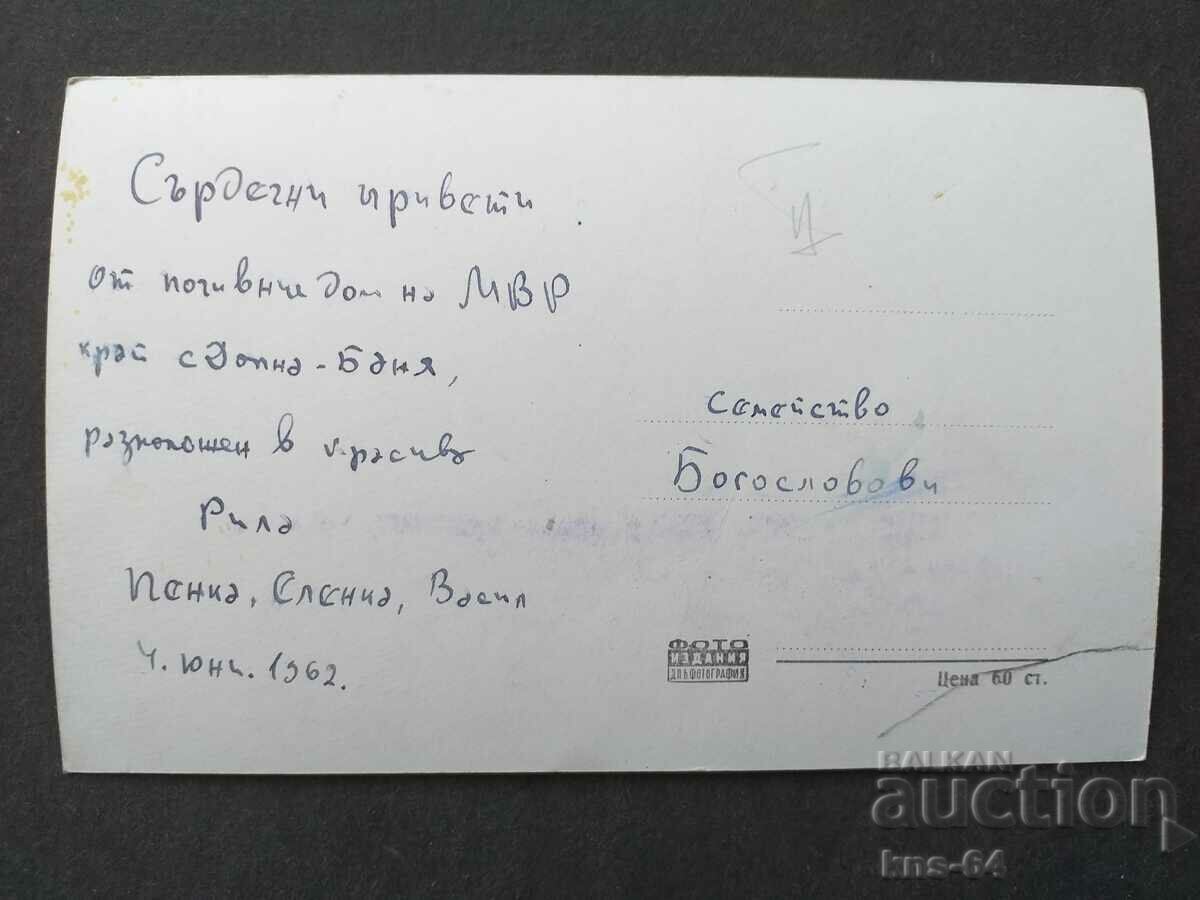 Сърдечни привети
от почивние дом на МВР
край с Долна-Баня,
разположен в красива
Рила
Пенка, Еленка, Васил
4. юни. 1962.
семейство
Богословови
ФОТО
ИЗДАНИЯ
ДП БЪЛГ. ФОТОГРАФИЯ
Цена 60 ст.
BALKAN
auction
kns-64